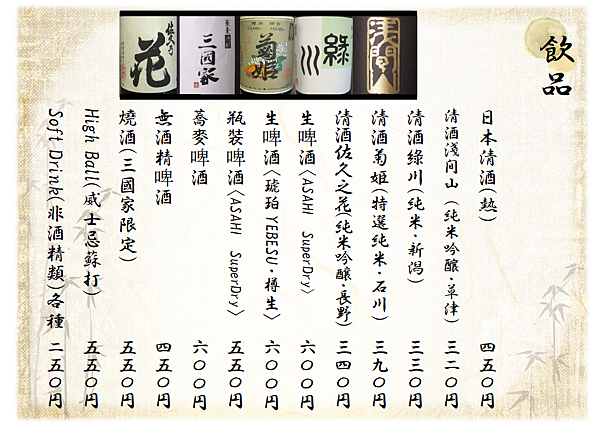 飲品
日本清酒(熱) 四五〇円
清酒淺間山 (純米吟醸・草津) 三二〇円
清酒綠川(純米・新潟) 三三〇円
清酒菊姬(特選純米・石川) 三九〇円
清酒佐久之花(純米吟醸・長野) 三四〇円
生啤酒〈ASAHI SuperDry〉 六〇〇円
生啤酒〈琥珀 YEBESU・樽生〉 六〇〇円
瓶裝啤酒〈ASAHI SuperDry〉 五五〇円
蕎麥啤酒 六〇〇円
無酒精啤酒 四五〇円
燒酒(三國家限定) 五五〇円
High Ball(威士忌蘇打) 五五〇円
Soft Drink(非酒精類)各種 二五〇円
佐久乃
花
三國家
菊姬
綠川
淺間